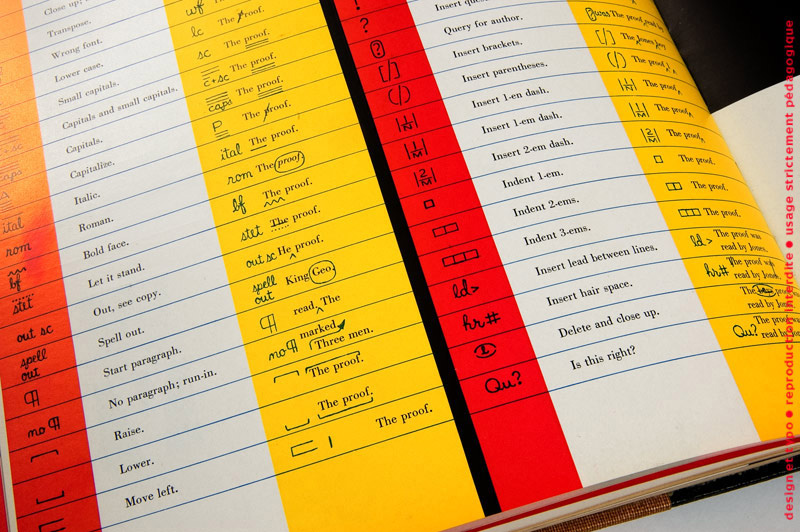 Close up;
Transpose.
wf
Wrong font.
lc The proof.
Lower case.
sc The proof.
Small capitals.
c+sc The proof.
Capitals and small capitals.
caps The proof.
Capitals.
The proof.
Capitalize.
ital The proof.
ital
Italic.
rom The proof.
rom
Roman.
bf The proof.
bf
Bold face.
stet The proof.
stet
Let it stand.
out sc He proof.
out sc
Out, see copy.
spell out King Geo.
spell out
Spell out.
¶ read, The
¶
Start paragraph.
no ¶ marked
Three men.
no ¶
No paragraph; run-in.
The proof.
Raise.
The proof.
Lower.
The proof.
Move left.
?
Query for author.
was The proof
[/]
Insert brackets.
The Jones
(/)
Insert parentheses.
The proof
Insert 1-en dash.
The proof
Insert 1-em dash.
The proof.
Insert 2-em dash.
The proof.
Indent 1-em.
The proof.
Indent 2-ems.
The proof.
Indent 3-ems.
The proof.
ld>
Insert lead between lines.
ld> The proof was
read by Jones.
hr#
Insert hair space.
hr# The proof was
read by Jones.
Delete and close up.
The
read by
Qu?
Is this right?
Qu? The proof
read by
design et typo ● reproduction interdite ● usage strictement pédagogique